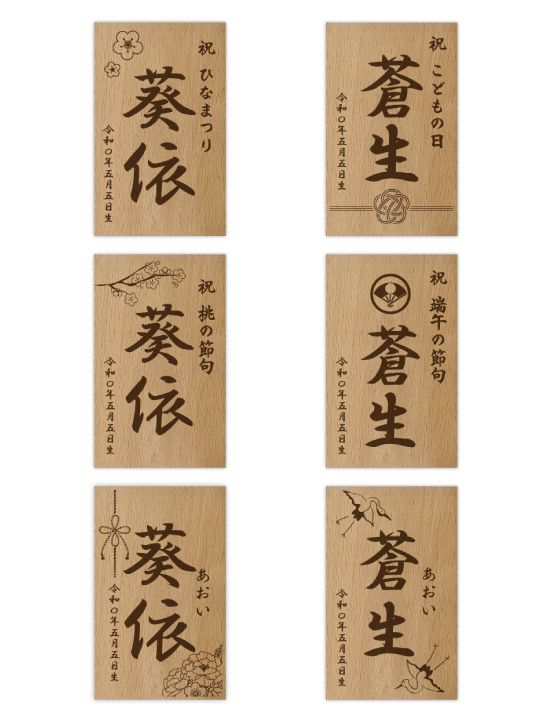 祝 ひなまつり
葵依
令和〇年五月五日生
祝 こどもの日
蒼生
令和〇年五月五日生
祝 桃の節句
葵依
令和〇年五月五日生
祝 端午の節句
蒼生
令和〇年五月五日生
あおい
葵依
令和〇年五月五日生
あおい
蒼生
令和〇年五月五日生